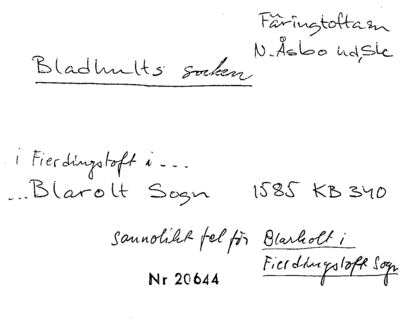 Färingtofta sn
N. Åsbo hd, Sk
Bladhults socken
i Fierdingstoft i ---
... Blarolt Sogn 1585 KB 340
sannolikt fel för Blarholt i
Fierdingstoft Sogn
Nr 20644